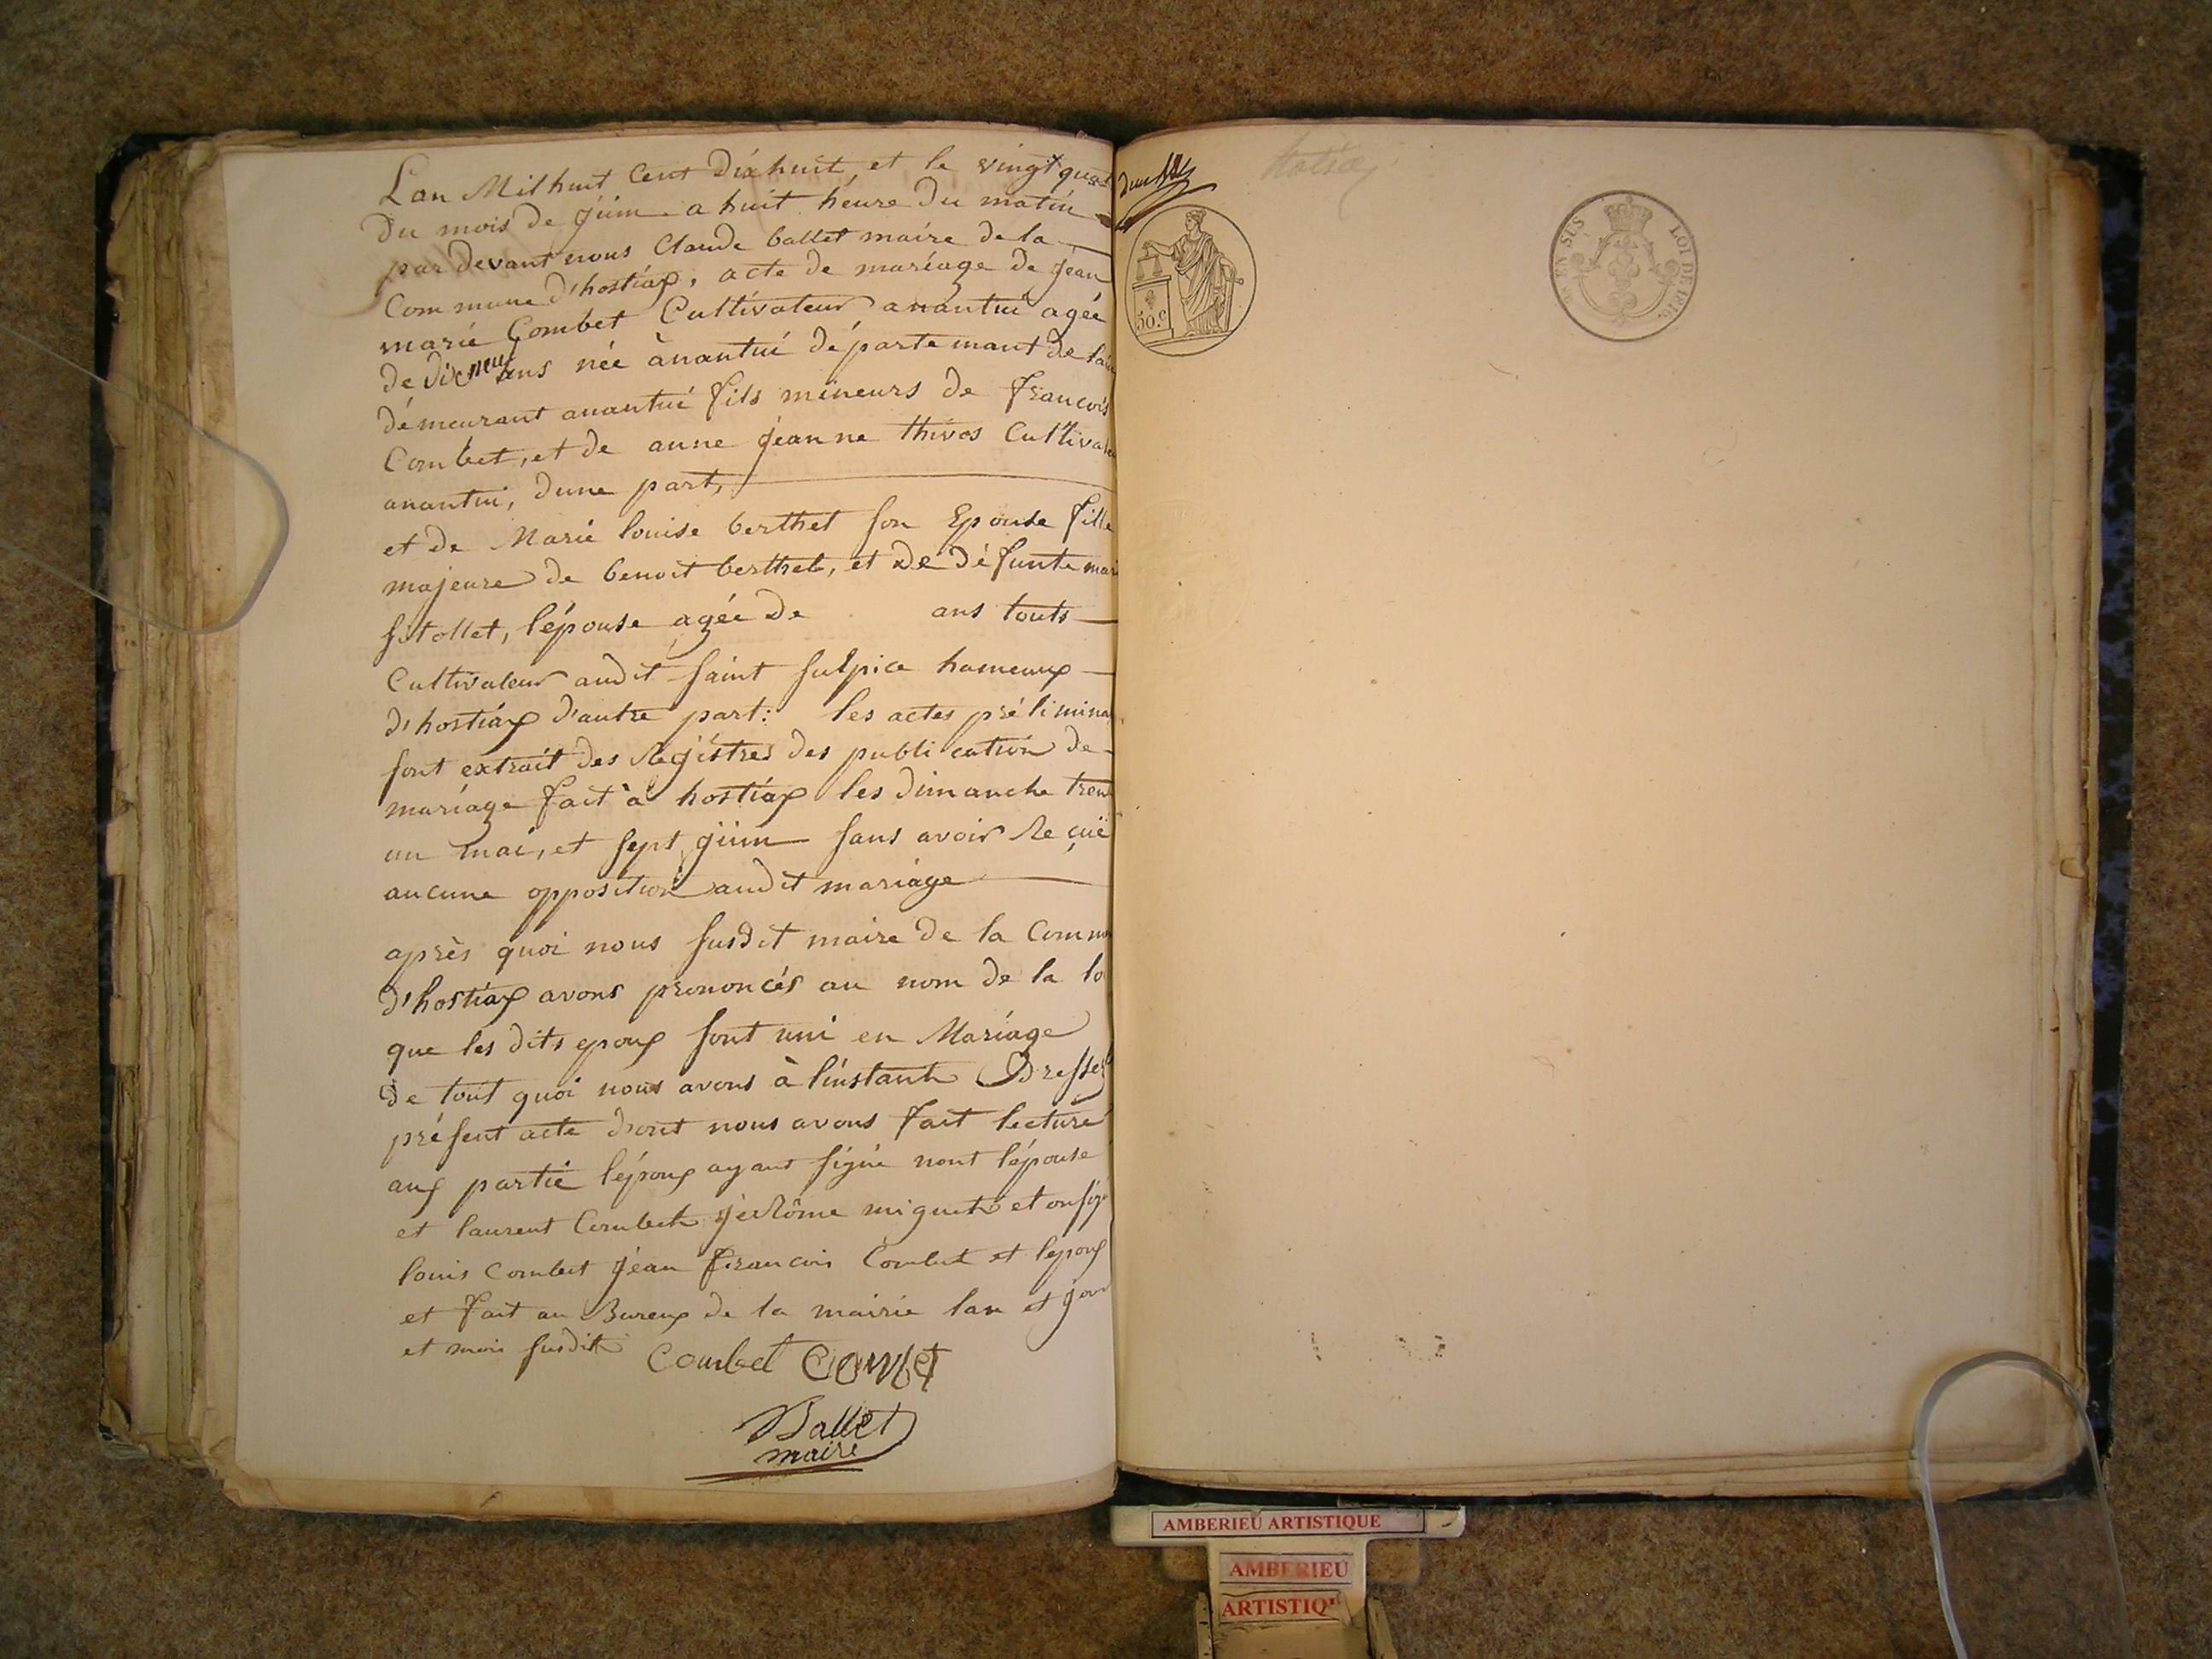 Lan Mil huit Cent Dix huit, et le vingt quat
Du mois de juin a huit heure Du matin
par devant nous Claude ballet maire de la
Commune d'hostiaz, acte de mariage de jean
marie Combet Cultivateur anantui agée
de dix neuf ans née ànantui département de lain
démeurant anantui fils mineurs de francois
Combet, et de anne jeanne thivos Cultivate
anantui, dune part,
et de Marie louise berthet son Epouse fille
majeure de benoit berthet, et de défunte mari
sitollet, l'épouse agée de ans touts
Cultivateur audit saint sulpice hameaux
d'hostiaz d'autre part: les actes prélimina
sont extrait des Registres des publication de
mariage fait à hostiaz les dimanche tren
un mai, et sept juin sans avoir Reçuë
aucune opposition audit mariage
après quoi nous susdit maire de la Commu
d'hostiaz avons prononcés au nom de la lo
que les dits epoux sont uni en Mariage
de tout quoi nous avons à linstant Dressé
présent acte d'ont nous avons fait lecture
aux partie lépoux ayant signé nont l'épouse
et laurent Combet jérôme miguet et on sig
louis Combet jean francois Combet et lepoux
et fait au Bureux de la mairie lan et jour
et mois susdit Combet COMBET
Ballet
maire
50.c
EN SUS
LOI DE 1816.
AMBERIEU ARTISTIQUE
AMBERIEU
ARTISTIQ